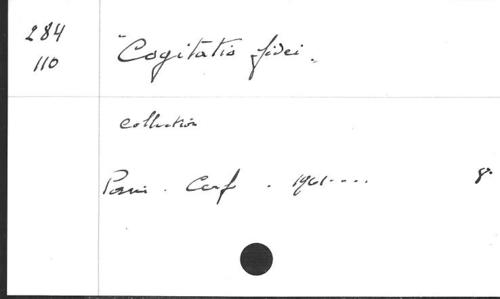 284
110
"Cogitatio fidei.
collection
Paris. Cerf. 1961.... 8°